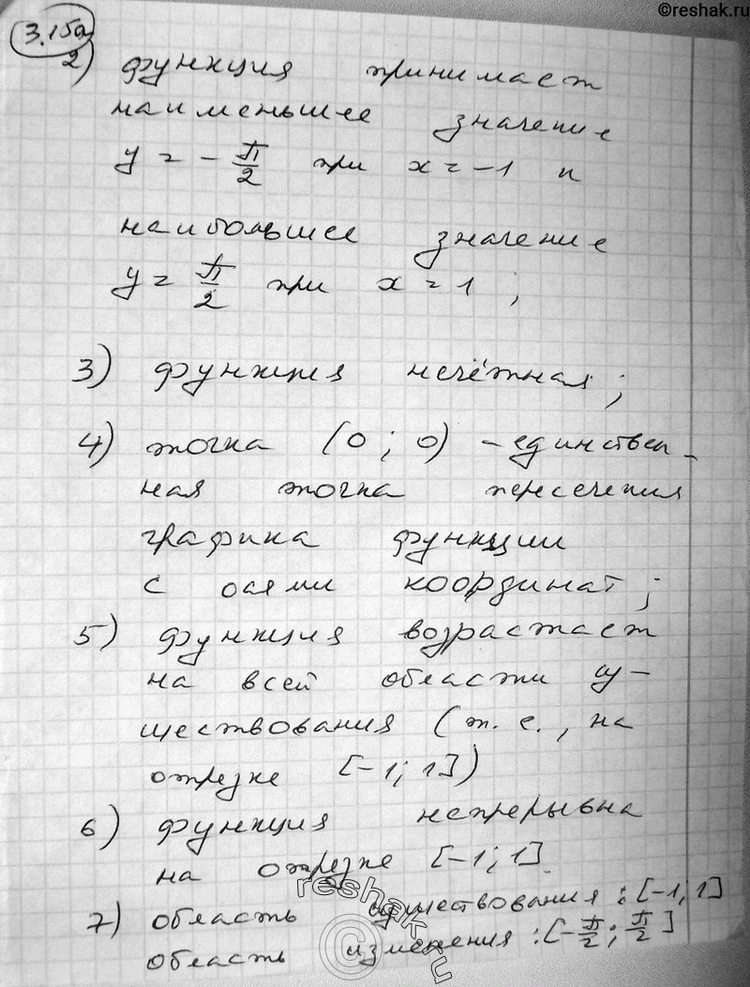 ©reshak.ru
3.15а
2) функция принимает
наименьшее значение
y = -π/2 при x = -1 и
наибольшее значение
y = π/2 при x = 1 ;
3) функция нечётная;
4) точка (0 ; 0) - единствен-
ная точка пересечения
графика функции
с осями координат;
5) функция возрастает
на всей области су-
ществования (т. е., на
отрезке [-1; 1])
6) функция непрерывна
на отрезке [-1; 1]
7) область существования : [-1; 1]
область изменения : [-π/2 ; π/2]
reshak.ru
©